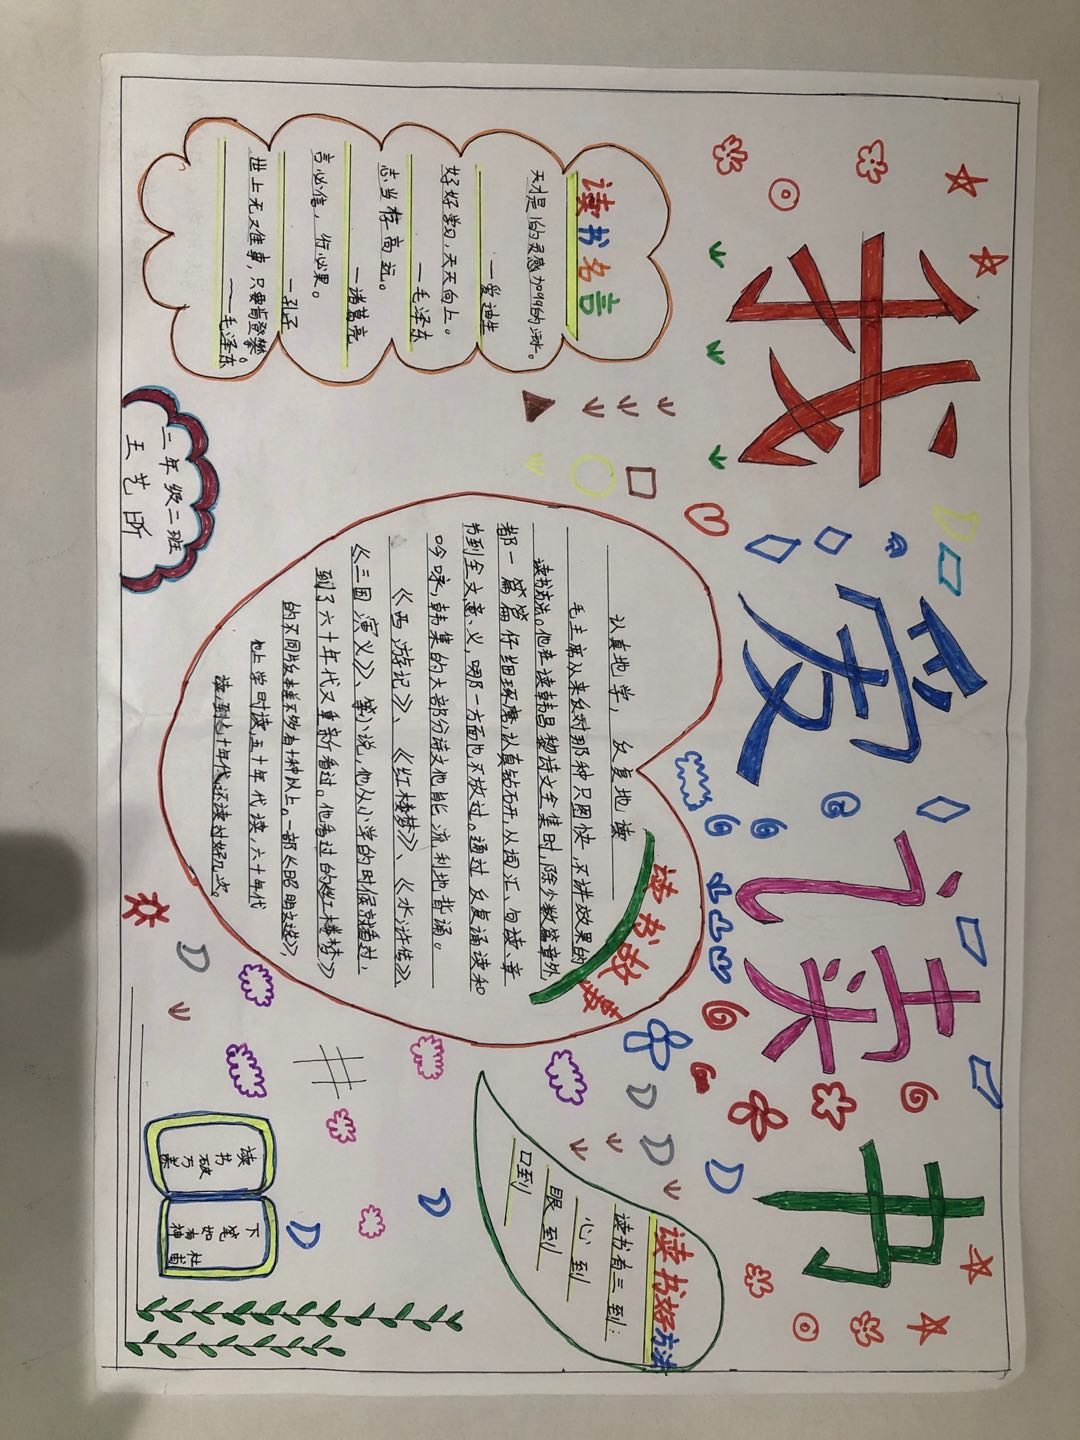 我爱读书
读书名言
天才是1%的灵感加99%的汗水。
——爱迪生
好好学习,天天向上。
——毛泽东
志当存高远。
——诸葛亮
言必信,行必果。
——孔子
世上无难事,只要肯登攀。
——毛泽东
二年级二班
王艺昕
读书故事
认真地学,反复地读
毛主席从来反对那种只图快,不讲效果的
读书方法。他在读韩昌黎诗文全集时,除少数篇章外
都一篇篇仔细琢磨,认真钻研,从词汇、句读、章
节到全文意义,哪一方面也不放过。通过反复诵读和
吟咏,韩集的大部分诗文他能流利地背诵。
《西游记》、《红楼梦》、《水浒传》、
《三国演义》、等小说,他从小学的时候就看过,
到了六十年代又重新看过。他看过的《红楼梦》
的不同版本差不多有十种以上。一部《昭明文选》,
他上学时读,五十年代读,六十年代
读,到七十年代还读过好几次。
读书好方法
读书有三到:
心到
眼到
口到
读书破万卷
下笔如有神
杜甫